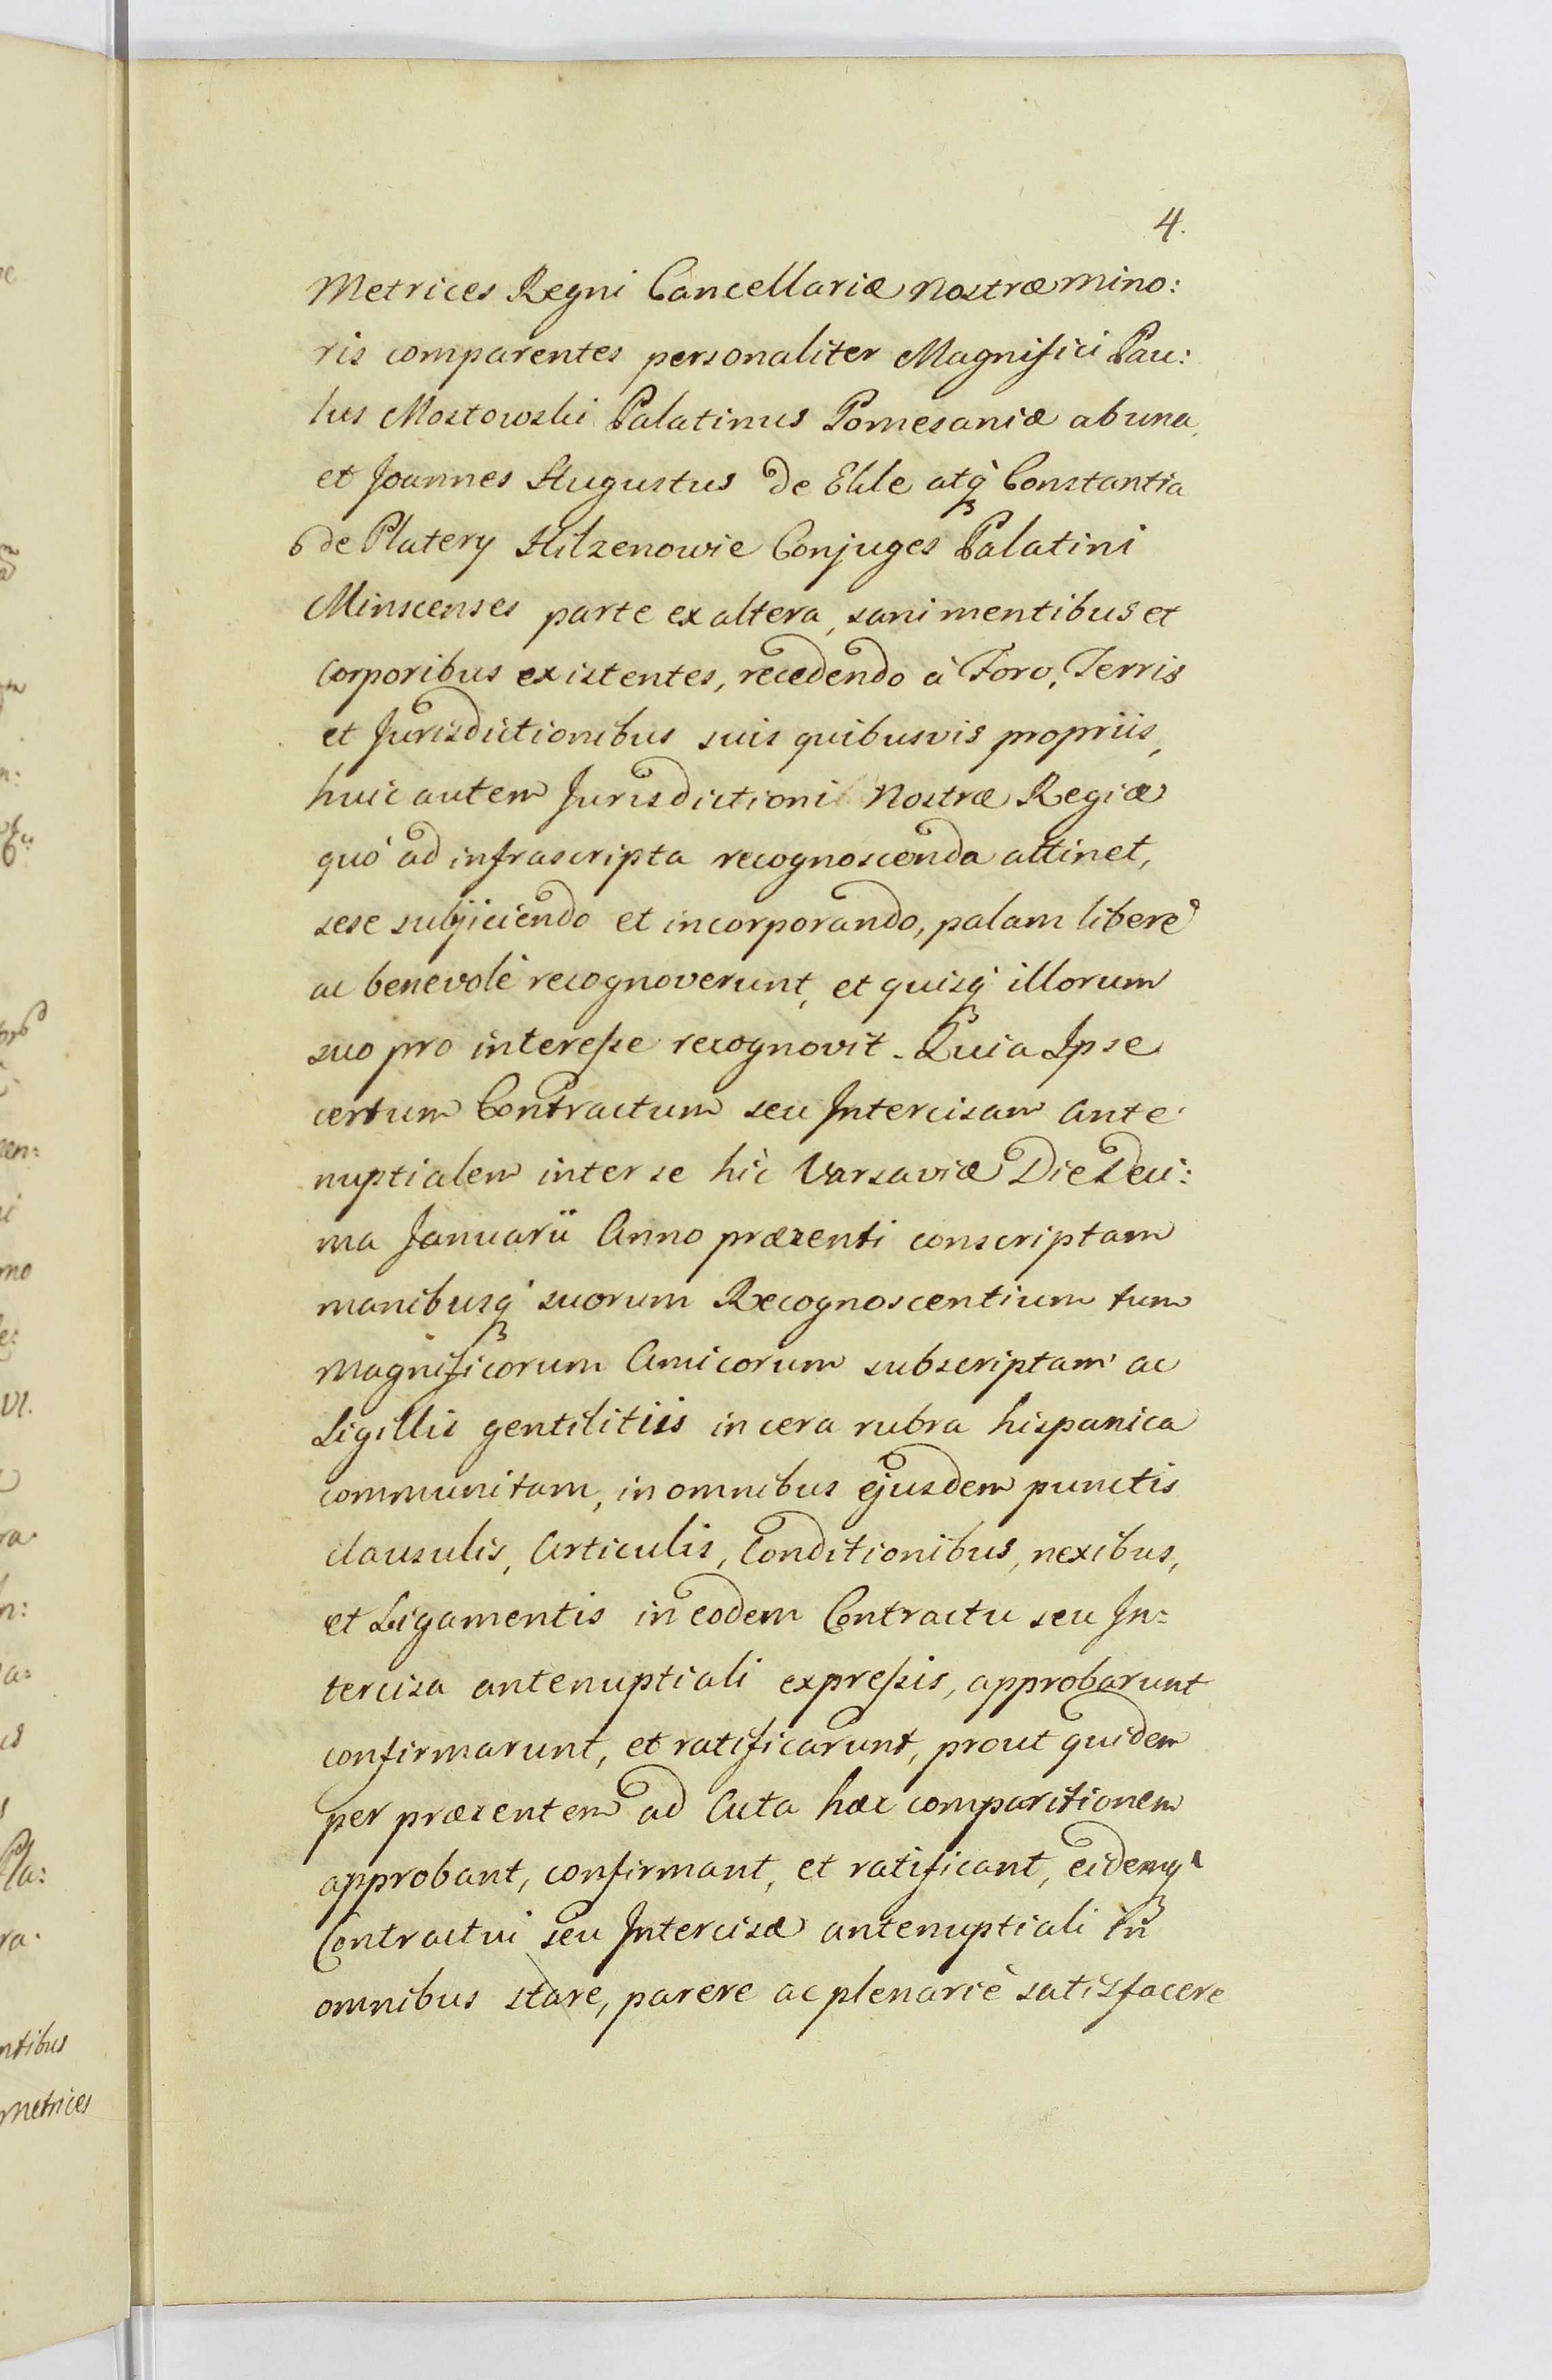 4.
Metrices Regni Cancellariæ Nostræ mino:
ris comparentes personaliter Magnifici Pau:
lus Mostowski Palatinus Pomesaniæ ab una,
et Joannes Augustus de Elile atq̀ꝫ Constantia
de Platery Hilzenowie Conjuges Palatini
Minscenses parte ex altera, sani mentibus et
corporibus existentes, recedendo à Foro, Terris
et Jurisdictionibus suis quibusvis propriis,
huic autem Jurisdictioni Nostræ Regiæ
quò ad infrascripta recognoscenda attinet,
sese subjiciendo et incorporando, palam liberè
ac benevolè recognoverunt, et quisq̀ꝫ illorum
suo pro interesse recognovit. Quia Ipse
certum Contractum seu Intercisam ante
nuptialem inter se hìc Varsaviæ Die Deci:
ma Januarii Anno præsenti conscriptam
manibusq̀ꝫ suorum Recognoscentium tum
Magnificorum Amicorum subscriptam ac
Sigillis gentilitiis in cera rubra hispanica
communitam, in omnibus ejusdem punctis
clausulis, Articulis, Conditionibus, nexibus,
et Ligamentis in eodem Contractu seu In=
tercisa antenuptiali expressis, approbarunt
confirmarunt, et ratificarunt, prout quidem
per præsentem ad Acta hæc comparitionem
approbant, confirmant, et ratificant, eidemq̀ꝫ
Contractui seu Intercisæ antenuptiali in
omnibus stare, parere ac plenariè satisfacere
ntibus
metrices